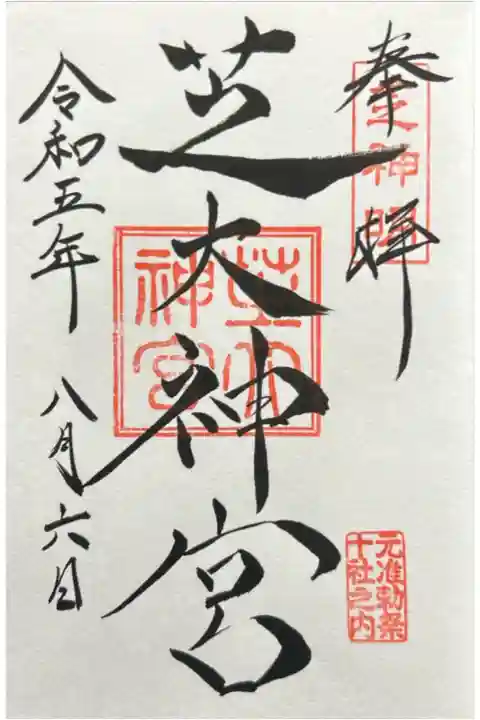 奉拝
芝大神宮
芝大神宮
元准勅祭
十社之内
令和五年 八月六日